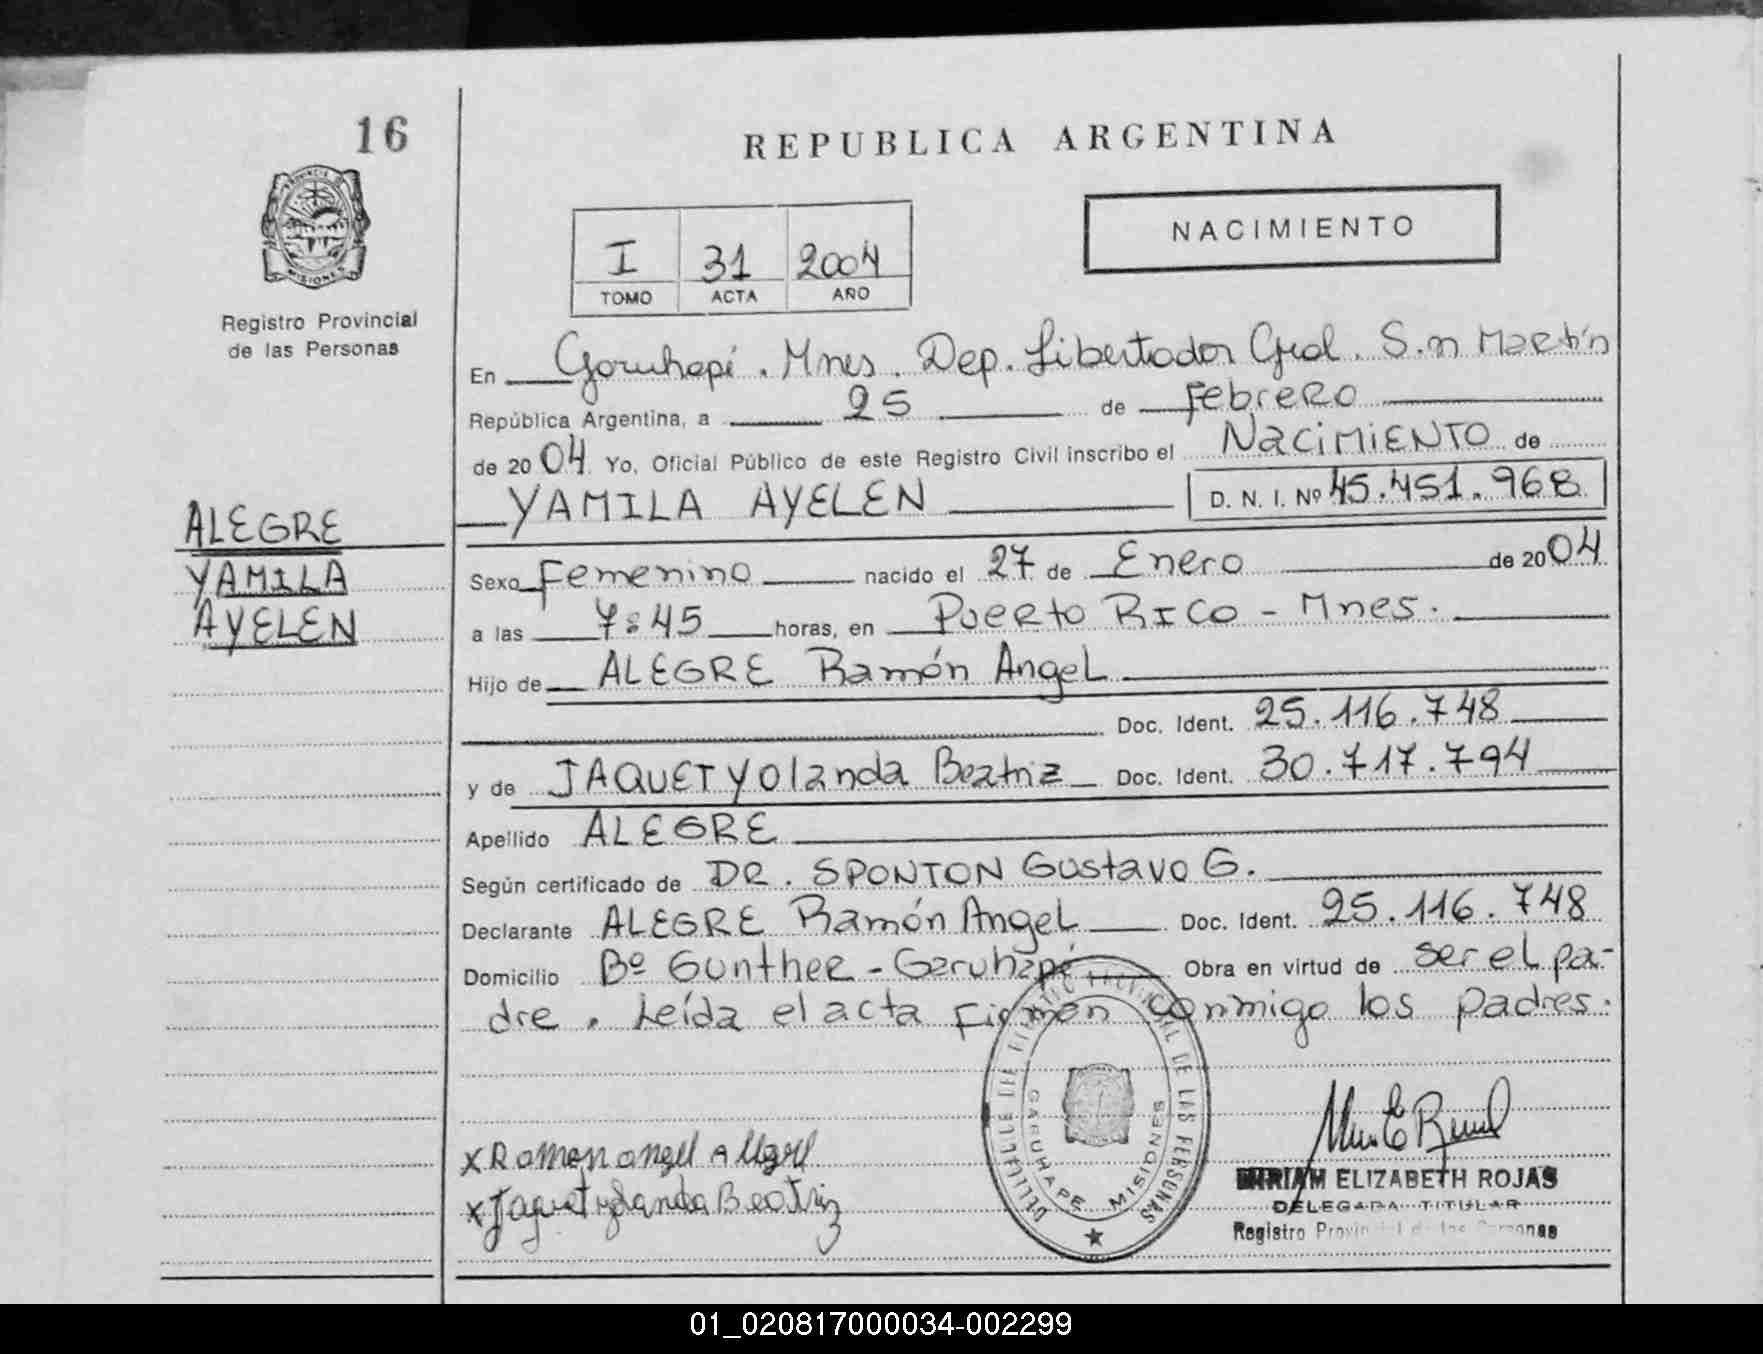 16
REPUBLICA ARGENTINA
PROVINCIA DE
MISIONES
Registro Provincial
de las Personas
NACIMIENTO
I 31 2004
TOMO ACTA AÑO
En Garuhapé. Mnes. Dep. Libertador Gral. S.n Martín
República Argentina, a 25 de Febrero
de 2004. Yo, Oficial Público de este Registro Civil inscribo el NACIMIENTO de
YAMILA AYELEN D. N. I. Nº 45.451.968
ALEGRE
YAMILA
AYELEN
Sexo Femenino nacido el 27 de Enero de 2004
a las 7:45 horas, en Puerto RICO - Mnes.
Hijo de ALEGRE Ramón Angel
Doc. Ident. 25.116.748
y de JAQUET Yolanda Beatriz Doc. Ident. 30.717.794
Apellido ALEGRE
Según certificado de DR. SPONTON Gustavo G.
Declarante ALEGRE Ramón Angel Doc. Ident. 25.116.748
Domicilio Bº Gunther - Garuhapé Obra en virtud de ser el pa-
dre. Leída el acta firman conmigo los padres.
x Ramon angel Alegre
x Jaquet yolanda Beatriz
REGISTRO PROVINCIAL DE LAS PERSONAS
GARUHAPE MISIONES
MIRIAM ELIZABETH ROJAS
DELEGADA TITULAR
Registro Provincial de las Personas
01_020817000034-002299